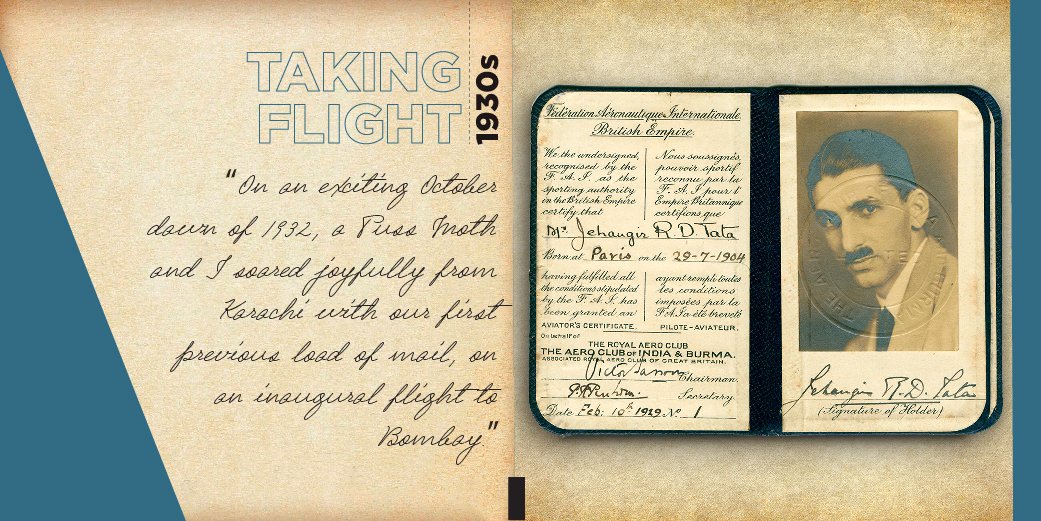 TAKING
FLIGHT
1930s
"On an exciting October
dawn of 1932, a Puss Moth
and I soared joyfully from
Karachi with our first
previous load of mail, on
an inaugural flight to
Bombay."
Fédération Aéronautique Internationale.
British Empire.
We the undersigned,
recognised by the
F. A. I. as the
sporting authority
in the British Empire
certify that
Nous soussignés,
pouvoir sportif
reconnu par la
F. A. I pour l'
Empire Britannique
certifions que
Mr Jehangir R. D. Tata
Born at Paris on the 29-7-1904
having fulfilled all
the conditions stipulated
by the F. A. I. has
been granted an
AVIATOR'S CERTIFICATE.
ayant rempli toutes
les conditions
imposées par la
F.A.I a été breveté
PILOTE-AVIATEUR.
On behalf of
THE ROYAL AERO CLUB
THE AERO CLUB OF INDIA & BURMA.
ASSOCIATED ROYAL AERO CLUB OF GREAT BRITAIN.
Victor Sassoon Chairman.
Secretary.
Date Feb: 10th 1929 No 1
Jehangir R. D. Tata
(Signature of Holder)